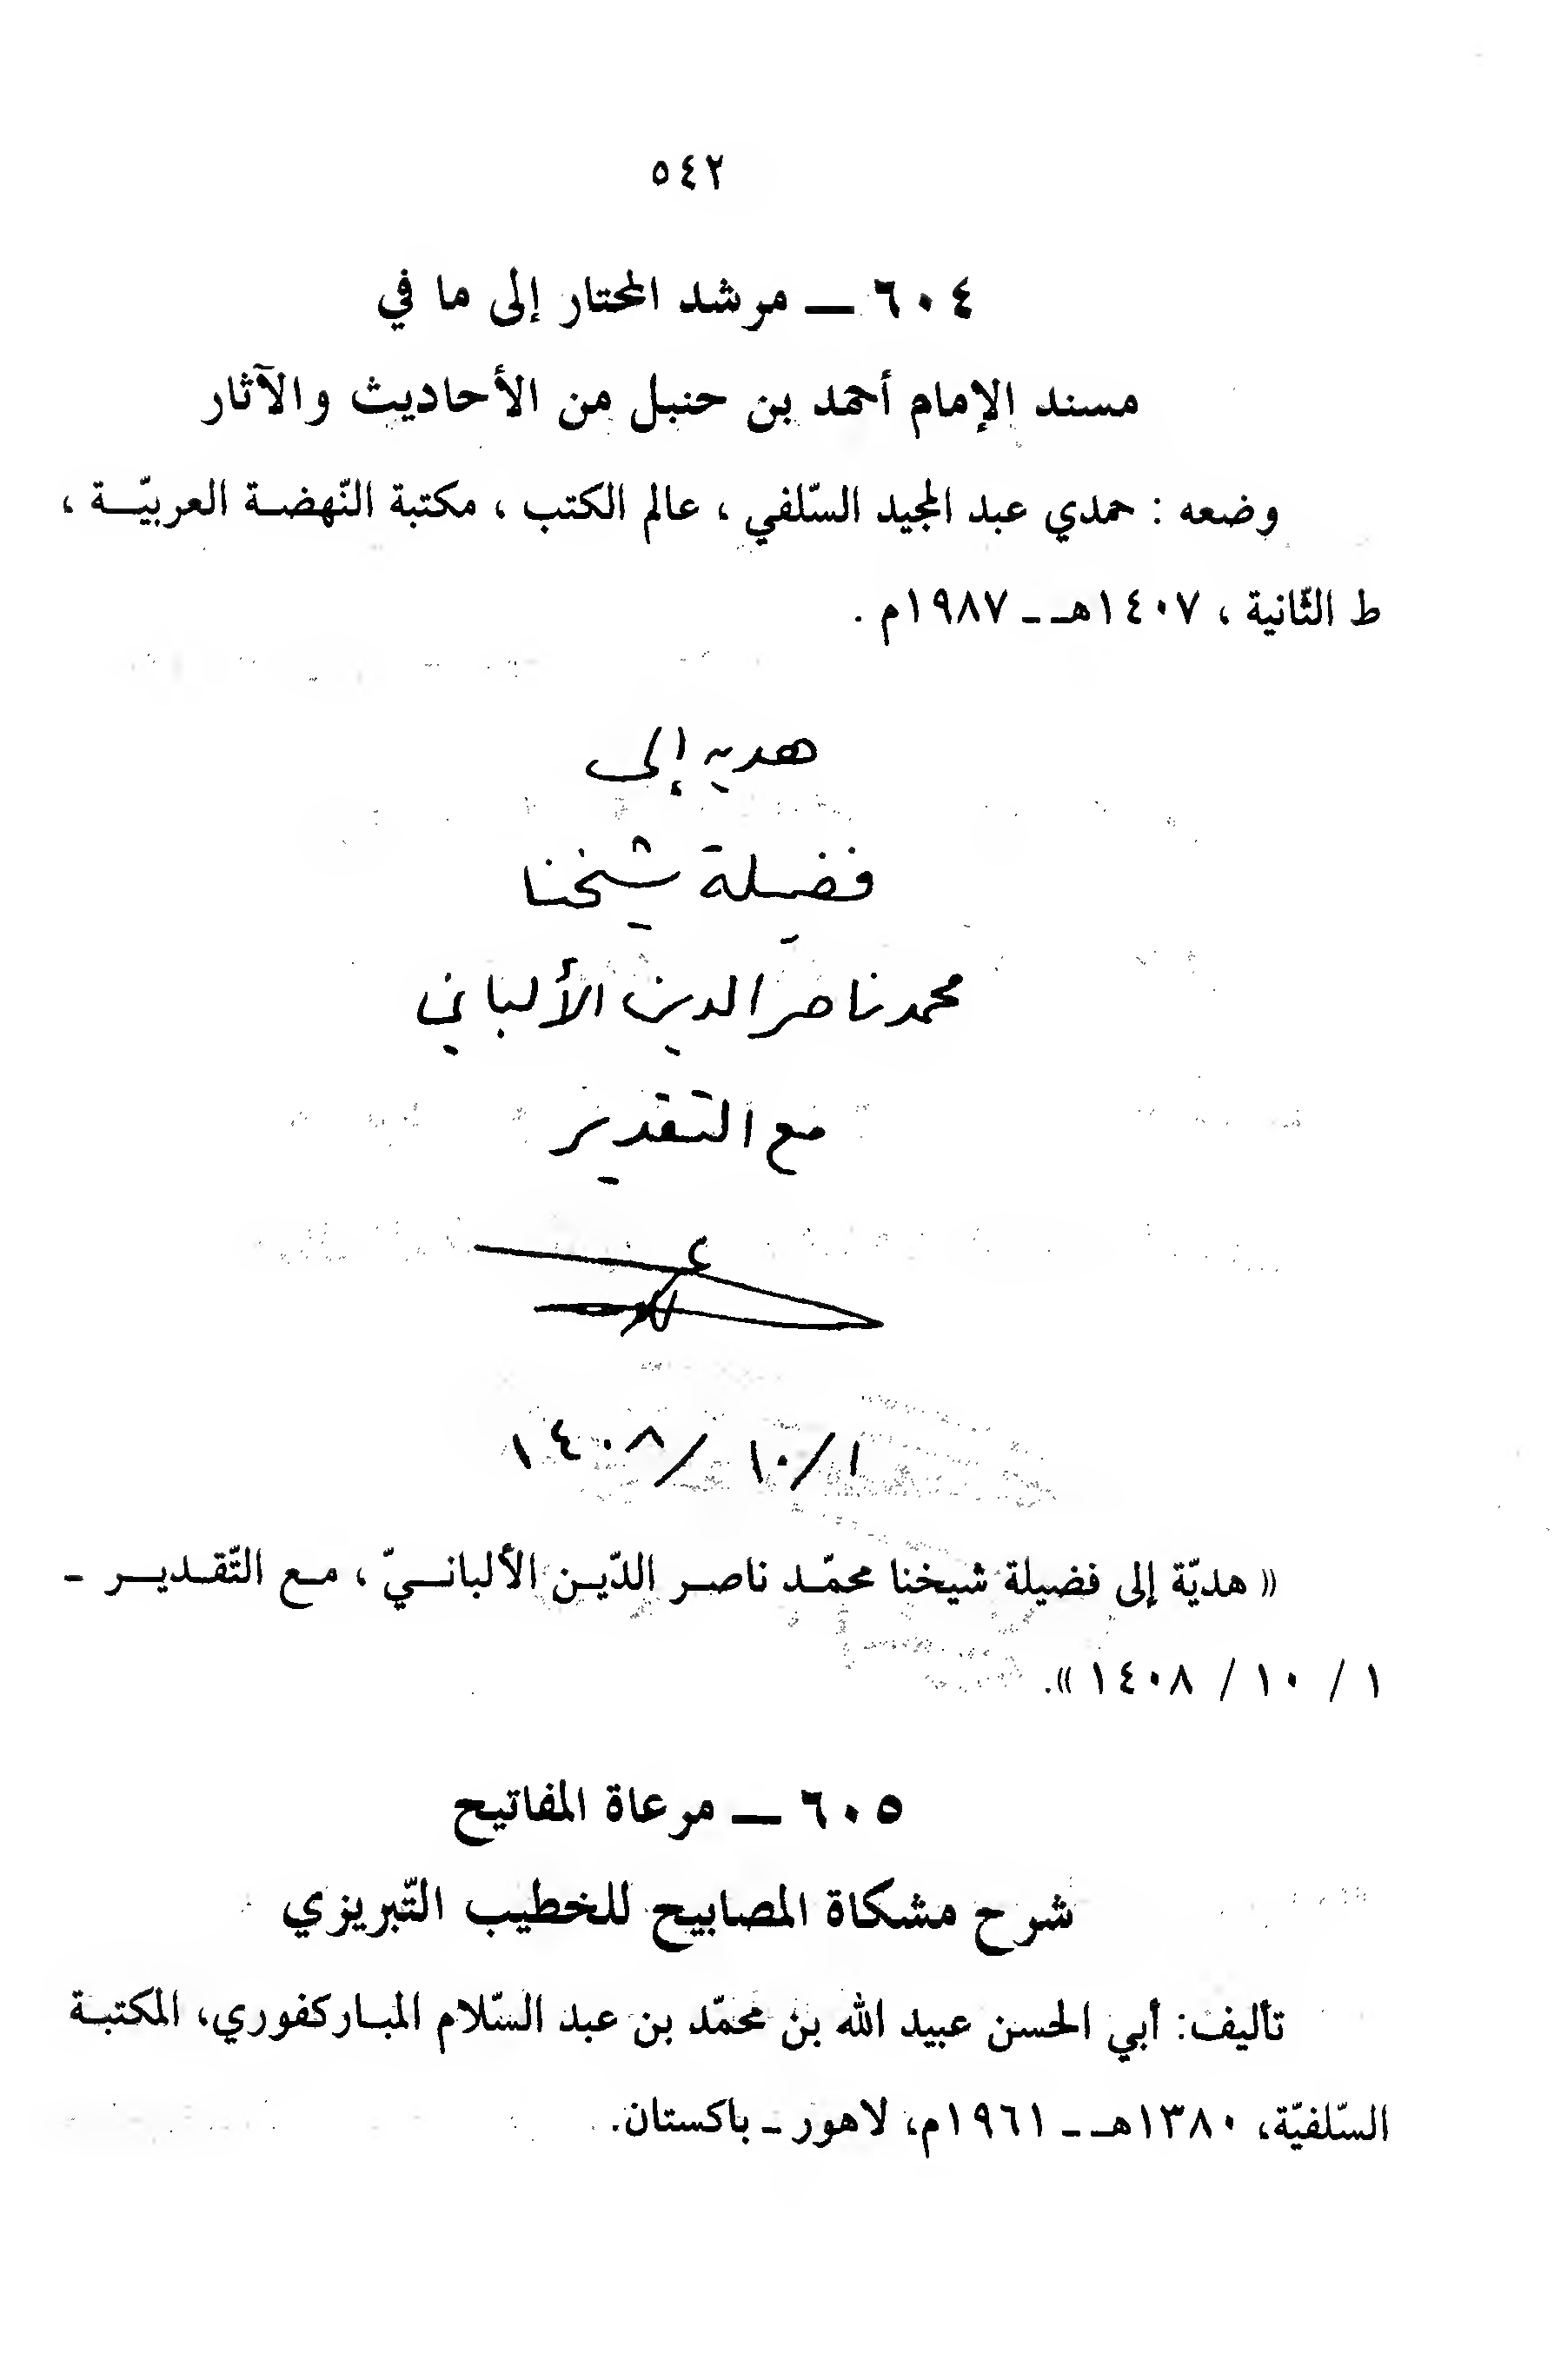 ٥٤٢
٦٠٤ — مرشد المحتار إلى ما في
مسند الإمام أحمد بن حنبل من الأحاديث والآثار
وضعه : حمدي عبد المجيد السّلفي ، عالم الكتب ، مكتبة النّهضة العربيّة ،
ط الثّانية ، ١٤٠٧هـ ـ ١٩٨٧م .
هديه إلى
فضيلة شيخنا
محمد ناصر الدين الألباني
مع التقدير
١/ ١٠ /١٤٠٨
« هديّة إلى فضيلة شيخنا محمّد ناصر الدّين الألبانيّ ، مع التّقدير ـ
١ / ١٠ / ١٤٠٨ ».
٦٠٥ — مرعاة المفاتيح
شرح مشكاة المصابيح للخطيب التّبريزي
تأليف: أبي الحسن عبيد الله بن محمّد بن عبد السّلام المباركفوري، المكتبة
السّلفيّة، ١٣٨٠هـ ـ ١٩٦١م، لاهور ـ باكستان.